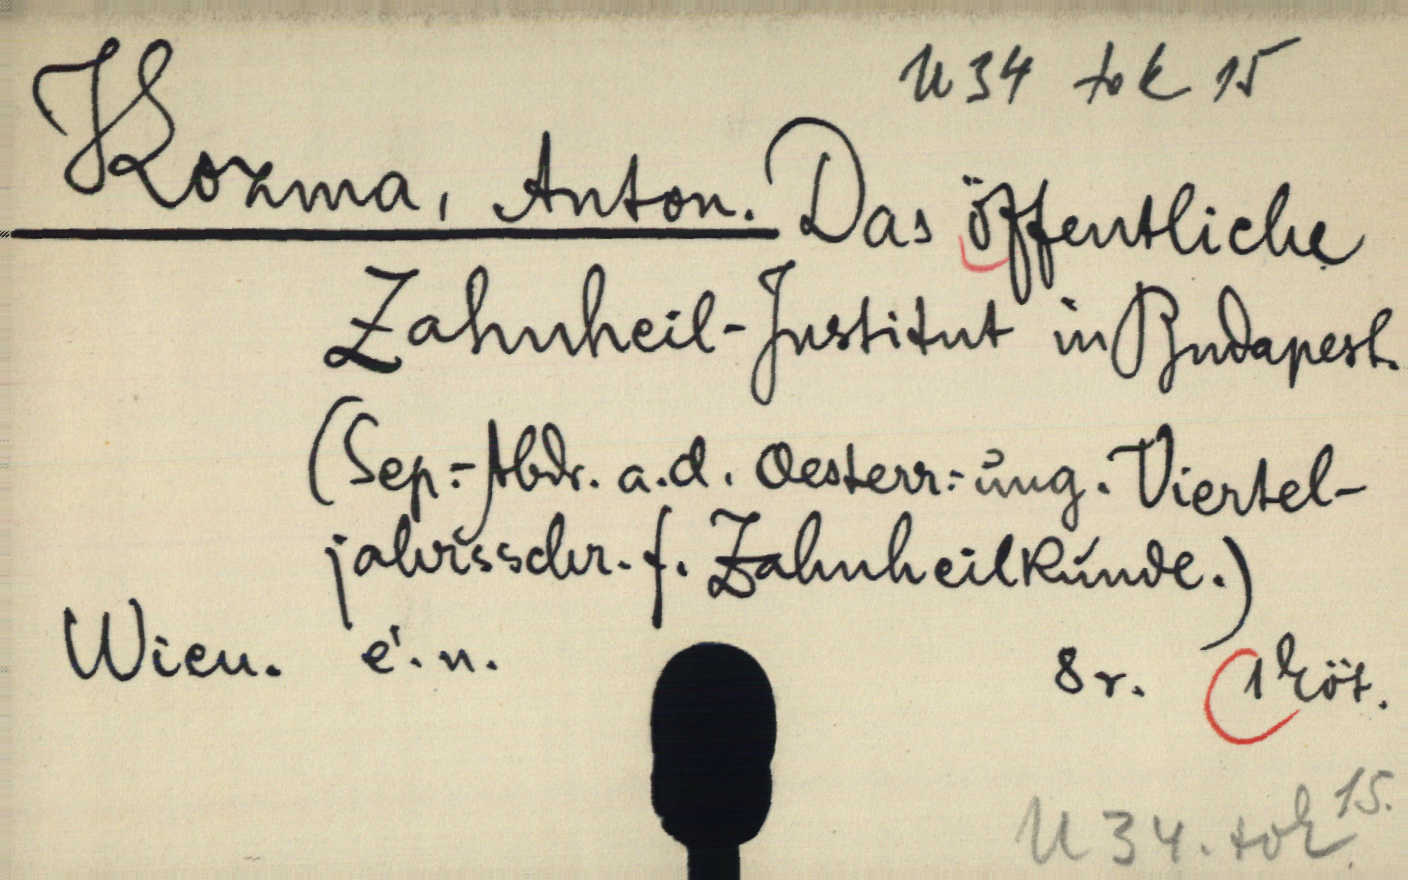 U 34 tok 15
Kozma, Anton. Das öffentliche
Zahnheil-Institut in Budapest.
(Sep.-Abdr. a. d. Oesterr.-ung. Viertel-
jahrsschr. f. Zahnheilkunde.)
Wien. é. n. 8 r. 1 köt.
U 34. tok 15.